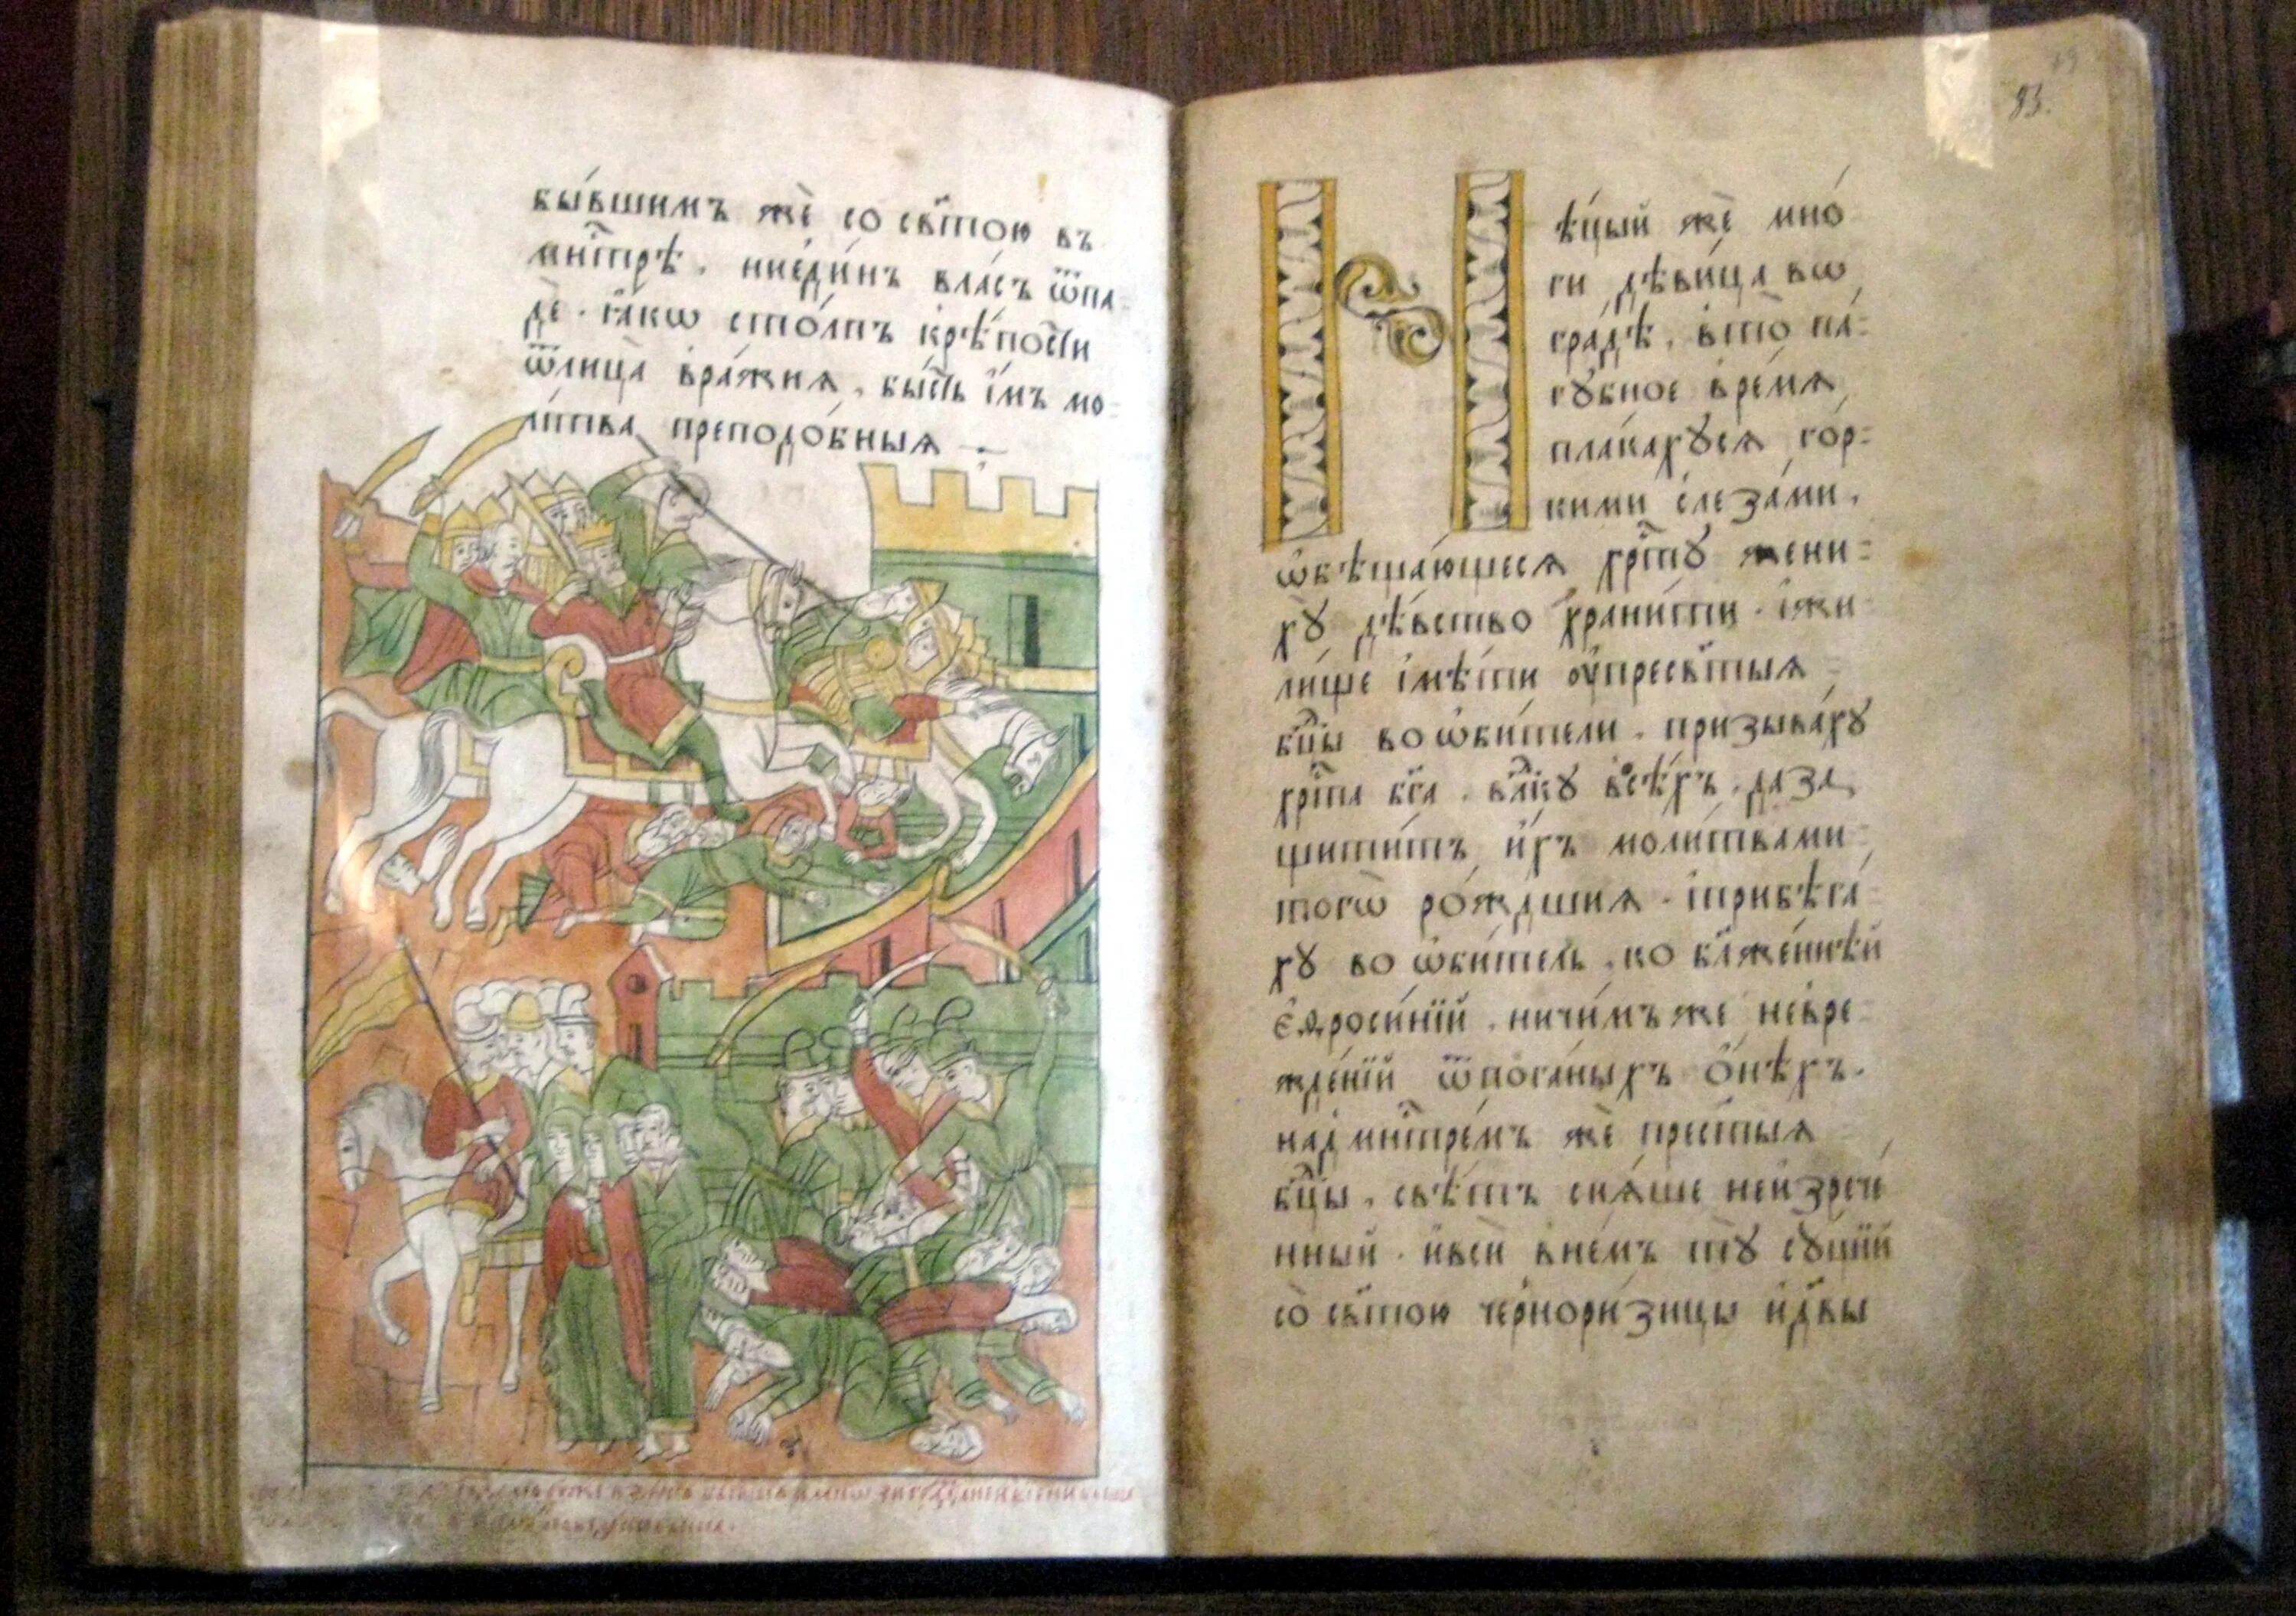 бы́вшимъ жѐ со ст҃ою въ
мн҇трѣ̀. ниеди́нъ вла́съ ѿпа-
дѐ. ꙗ҆́кѡ сто́лпъ крѣ́пости
ѿлица̀ вра́жиѧ, бы́сть і҆̀мъ мо-
ли́тва преподо́бныѧ
Нѣ́цыи жѐ мно́
ги дѣви́ца во
гра́дѣ, вто̀ па́-
гꙋбное вре́мѧ
пла́кахꙋсѧ го́р-
кими слеза́ми,
ѡбѣща́ющесѧ хр҇тꙋ̀ жени-
хꙋ̀ дѣ́вство храни́ти. і҆жи-
ли́ще і҆мѣ́ти ᲂу҆пресвт҃ыѧ
бц҃ы во ѡби́тели. призыва́хꙋ
хр҇та бг҃а. влⷣкꙋ всѣ́хъ. да за
щити́тъ и҆́хъ моли́твами
тогѡ̀ ро́ждшиѧ. і҆прибѣга́-
хꙋ во ѡби́тель, ко бл҃же́ннѣй
є҆ѵфроси́нїй. ничи́мъ же невре-
жде́нїй ѿпога́ныхъ ѻ҆нѣ́хъ.
над мн҇тре́мъ жѐ прес҇тыѧ
бц҃ы, свѣ́тъ сиѧ́ше неизрече́
нный. и҆всѝ вне́мъ тꙋ̀ сꙋ́щїй
со̀ свт҃ою черно́ри́зицы и҆дв҃ы